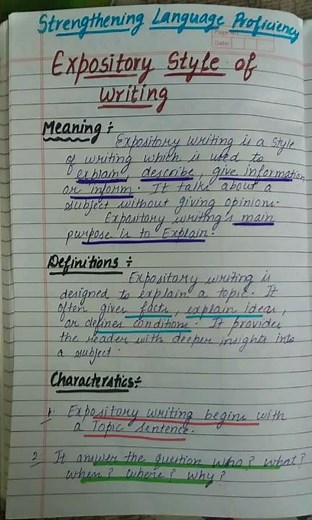 Strengthening Language Proficiency
Page
Date:
Expository Style of
Writing
Meaning :
Expository writing is a style
of writing which is used to
explain, describe, give information
or inform. It talks about a
subject without giving opinions.
Expository writing's main
purpose is to Explain.
Definitions :
Expository writing is
designed to explain a topic. It
often gives facts, explain ideas,
or defines conditions. It provides
the reader with deeper insights into
a subject.
Characteristics :
1. Expository writing begins with
a Topic sentence.
2. It answer the question who? what?
when? where? why?